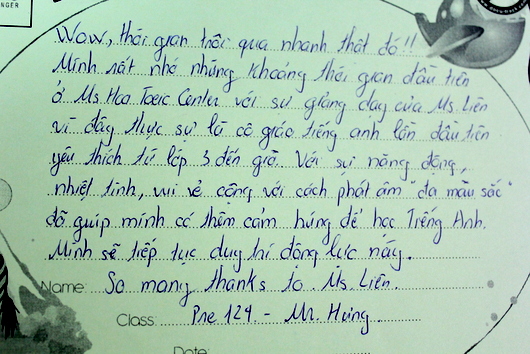 NGER
Wow, thời gian trôi qua nhanh thật đó!!
Mình rất nhớ những khoảng thời gian đầu tiên
ở Ms Hoa Toeic Center với sự giảng dạy của Ms. Liên
vì đây thực sự là cô giáo tiếng anh lần đầu tiên
yêu thích từ lớp 3 đến giờ. Với sự năng động,
nhiệt tình, vui vẻ cộng với cách phát âm "đa màu sắc"
đã giúp mình có thêm cảm hứng để học Tiếng Anh.
Mình sẽ tiếp tục duy trì động lực này.
Name: So many thanks to Ms. Liên.
Class: Pre 124 - Mr. Hưng
Date: